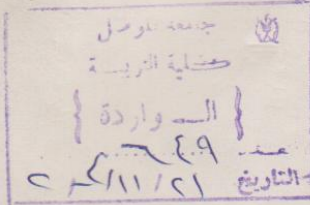 جامعة الموصل
كلية التربية
{ الـــواردة }
عدد
التاريخ ٢١ / ١١ /